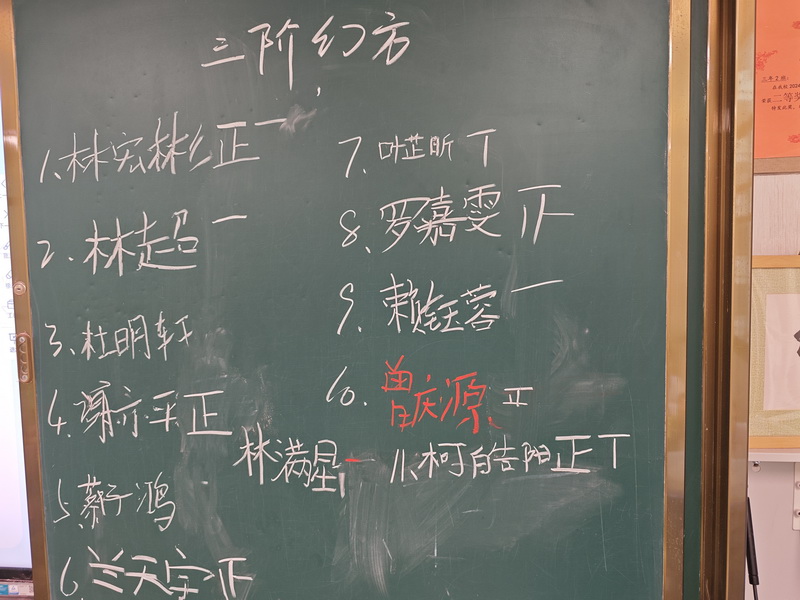 三阶幻方
1.林宏彬正一
2.林超一
3.杜明轩
4.谢亦平正
5.蔡子鸿
6.兰天宇正
7.叶芷昕丅
8.罗嘉雯
9.赖钰蓉一
10.曾庆源
林满星一
11.柯皓阳正丅
二等奖